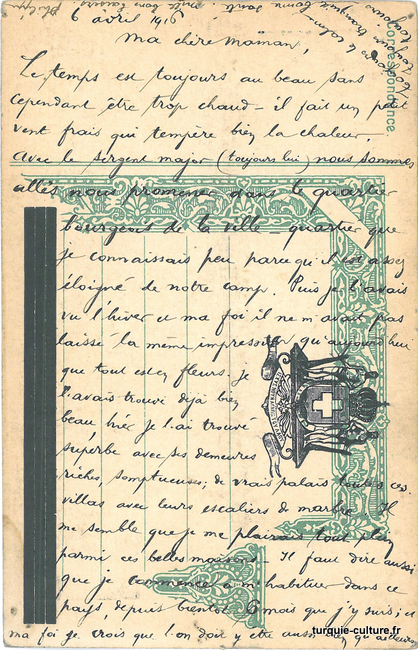 6 avril 1916
Ma chère maman,
Le temps est toujours au beau sans
cependant être trop chaud – il fait un petit
vent frais qui tempère bien la chaleur –
Avec le sergent major (toujours lui) nous sommes
allés nous promener dans le quartier
bourgeois de la ville – quartier que
je connaissais peu parce qu'il est assez
éloigné de notre camp. Puis je l'avais
vu l'hiver et ma foi il ne m'avait pas
laissé la même impression qu'aujourd'hui
que tout est en fleurs. Je
l'avais trouvé déjà bien
beau hier je l'ai trouvé
superbe avec ses demeures
riches, somptueuses; de vrais palais toutes ces
villas avec leurs escaliers de marbre. Il
me semble que je me plairais tout plein
parmi ces belles maisons – Il faut dire aussi
que je commence à m'habituer dans ce
pays, depuis bientôt 6 mois que j'y suis; et
ma foi je crois que l'on doit y être aussi bien qu'ailleurs
Correspondance
turquie-culture.fr